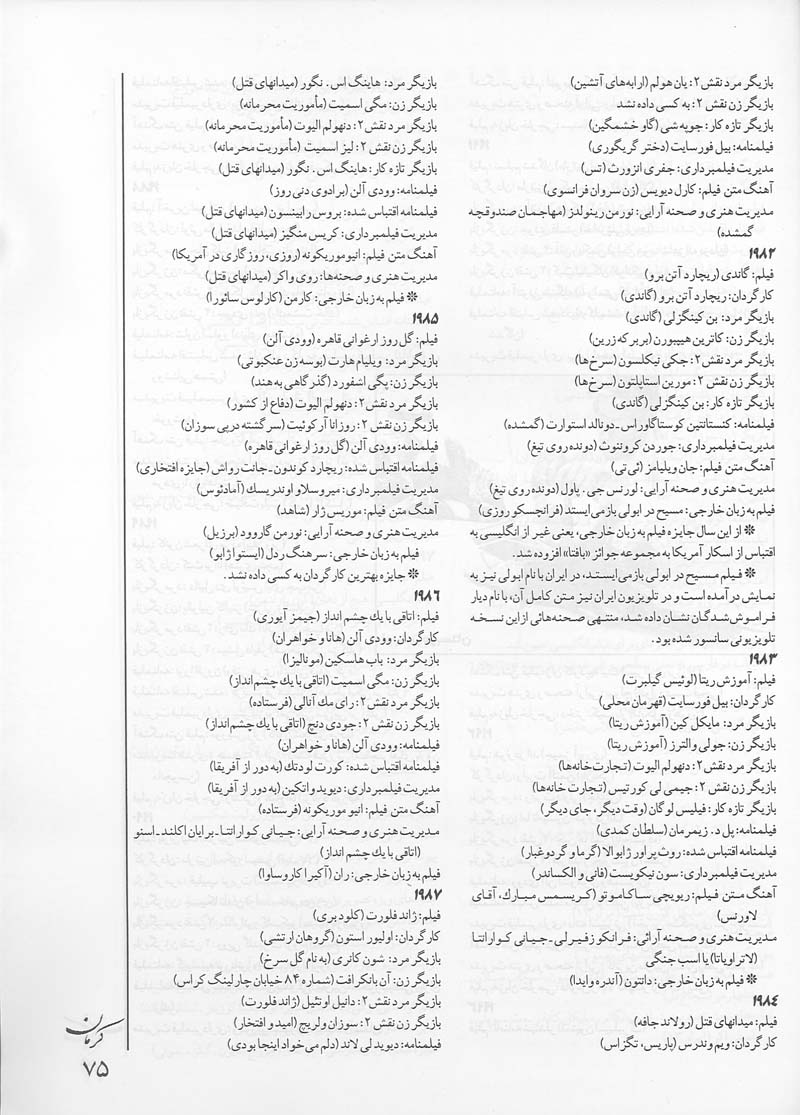 بازیگر مرد نقش ۲: یان هولم (ارابه‌های آتشین)
بازیگر زن نقش ۲: به کسی داده نشد
بازیگر تازه کار: جو پشی (گاو خشمگین)
فیلمنامه: بیل فورسایت (دختر گریگوری)
مدیریت فیلمبرداری: جفری انزورث (تس)
آهنگ متن فیلم: کارل دیویس (زن سروان فرانسوی)
مدیریت هنری و صحنه آرایی: نورمن رینولدز (مهاجمان صندوقچه
گمشده)
۱۹۸۲
فیلم: گاندی (ریچارد آتن برو)
کارگردان: ریچارد آتن برو (گاندی)
بازیگر مرد: بن کینگزلی (گاندی)
بازیگر زن: کاترین هیپبورن (بر برکه زرین)
بازیگر مرد نقش ۲: جکی نیکلسون (سرخ‌ها)
بازیگر زن نقش ۲: مورین استاپلتون (سرخ‌ها)
بازیگر تازه کار: بن کینگزلی (گاندی)
فیلمنامه: کنستانتین کوستاگاوراس ـ دونالد استوارت (گمشده)
مدیریت فیلمبرداری: جوردن کروننوث (دونده روی تیغ)
آهنگ متن فیلم: جان ویلیامز (ئی تی)
مدیریت هنری و صحنه آرایی: لورنس جی. پاول (دونده روی تیغ)
فیلم به زبان خارجی: مسیح در ابولی بازمی ایستد (فرانچسکو روزی)
❋ از این سال جایزه فیلم به زبان خارجی، یعنی غیر از انگلیسی به
اقتباس از اسکار آمریکا به مجموعه جوائز «بافتا» افزوده شد.
❋ فیلم مسیح در ابولی بازمی ایستد، در ایران با نام ابولی نیز به
نمایش در آمده است و در تلویزیون ایران نیز متن کامل آن، با نام دیار
فراموش شدگان نشان داده شد، منتهی صحنه‌هائی از این نسخه
تلویزیونی سانسور شده بود.
۱۹۸۳
فیلم: آموزش ریتا (لوئیس گیلبرت)
کارگردان: بیل فورسایت (قهرمان محلی)
بازیگر مرد: مایکل کین (آموزش ریتا)
بازیگر زن: جولی والترز (آموزش ریتا)
بازیگر مرد نقش ۲: دنهولم الیوت (تجارت خانه‌ها)
بازیگر زن نقش ۲: جیمی لی کورتیس (تجارت خانه‌ها)
بازیگر تازه کار: فیلیس لوگان (وقت دیگر، جای دیگر)
فیلمنامه: پل د. زیمرمان (سلطان کمدی)
فیلمنامه اقتباس شده: روث پراور ژابوالا (گرما و گردوغبار)
مدیریت فیلمبرداری: سون نیکویست (فانی و الکساندر)
آهنگ متن فیلم: ریویچی ساکاموتو (کریسمس مبارك، آقای
لاورنس)
مدیریت هنری و صحنه آرائی: فرانکو زفیرلی ـ جیانی کوارانتا
(لاتراویاتا) یا اسب جنگی
❋ فیلم به زبان خارجی: دانتون (آندره وایدا)
۱۹۸٤
فیلم: میدانهای قتل (رولاند جافه)
کارگردان: ویم وندرس (پاریس، تگزاس)
بازیگر مرد: هاینگ اس. نگور (میدانهای قتل)
بازیگر زن: مگی اسمیت (مأموریت محرمانه)
بازیگر مرد نقش ۲: دنهولم الیوت (مأموریت محرمانه)
بازیگر زن نقش ۲: لیز اسمیت (مأموریت محرمانه)
بازیگر تازه کار: هاینگ اس. نگور (میدانهای قتل)
فیلمنامه: وودی آلن (برادوی دنی روز)
فیلمنامه اقتباس شده: بروس رابینسون (میدانهای قتل)
مدیریت فیلمبرداری: کریس منگیز (میدانهای قتل)
آهنگ متن فیلم: انیو موریکونه (روزی، روزگاری در آمریکا)
مدیریت هنری و صحنه‌ها: روی واکر (میدانهای قتل)
❋ فیلم به زبان خارجی: کارمن (کارلوس سائورا)
۱۹۸۵
فیلم: گل روز ارغوانی قاهره (وودی آلن)
بازیگر مرد: ویلیام هارت (بوسه زن عنکبوتی)
بازیگر زن: پگی اشفورد (گذرگاهی به هند)
بازیگر مرد نقش ۲: دنهولم الیوت (دفاع از کشور)
بازیگر زن نقش ۲: روزانا آرکوئیت (سرگشته در پی سوزان)
فیلمنامه: وودی آلن (گل روز ارغوانی قاهره)
فیلمنامه اقتباس شده: ریچارد کوندون ـ جانت رواش (جایزه افتخاری)
مدیریت فیلمبرداری: میروسلاو اوندریسك (آمادئوس)
آهنگ متن فیلم: موریس ژار (شاهد)
مدیریت هنری و صحنه آرایی: نورمن گاروود (برزیل)
فیلم به زبان خارجی: سرهنگ ردل (ایستوا ژابو)
❋ جایزه بهترین کارگردان به کسی داده نشد.
۱۹۸۶
فیلم: اتاقی با یك چشم انداز (جیمز آیوری)
کارگردان: وودی آلن (هانا و خواهران)
بازیگر مرد: باب هاسکین (مونالیزا)
بازیگر زن: مگی اسمیت (اتاقی با یك چشم انداز)
بازیگر مرد نقش ۲: رای مك آنالی (فرستاده)
بازیگر زن نقش ۲: جودی دنچ (اتاقی با یك چشم انداز)
فیلمنامه: وودی آلن (هانا و خواهران)
فیلمنامه اقتباس شده: کورت لودتك (به دور از آفریقا)
مدیریت فیلمبرداری: دیوید واتکین (به دور از آفریقا)
آهنگ متن فیلم: انیو موریکونه (فرستاده)
مدیریت هنری و صحنه آرایی: جیانی کوارانتا ـ برایان اکلند ـ اسنو
(اتاقی با یك چشم انداز)
فیلم به زبان خارجی: ران (آکیرا کاروساوا)
۱۹۸۷
فیلم: ژاند فلورت (کلود بری)
کارگردان: اولیور استون (گروهان ارتشی)
بازیگر مرد: شون کانری (به نام گل سرخ)
بازیگر زن: آن بانکرافت (شماره ۸۴ خیابان چارلینگ کراس)
بازیگر مرد نقش ۲: دانیل اوتئیل (ژاند فلورت)
بازیگر زن نقش ۲: سوزان ولریچ (امید و افتخار)
فیلمنامه: دیوید لی لاند (دلم می خواد اینجا بودی)
کرمان
۷۵